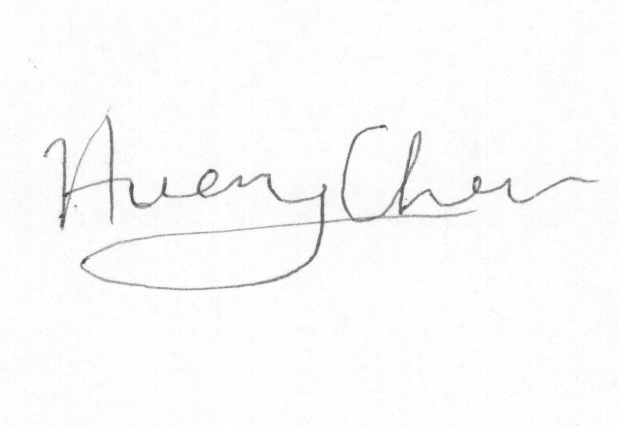 Hueny Chen